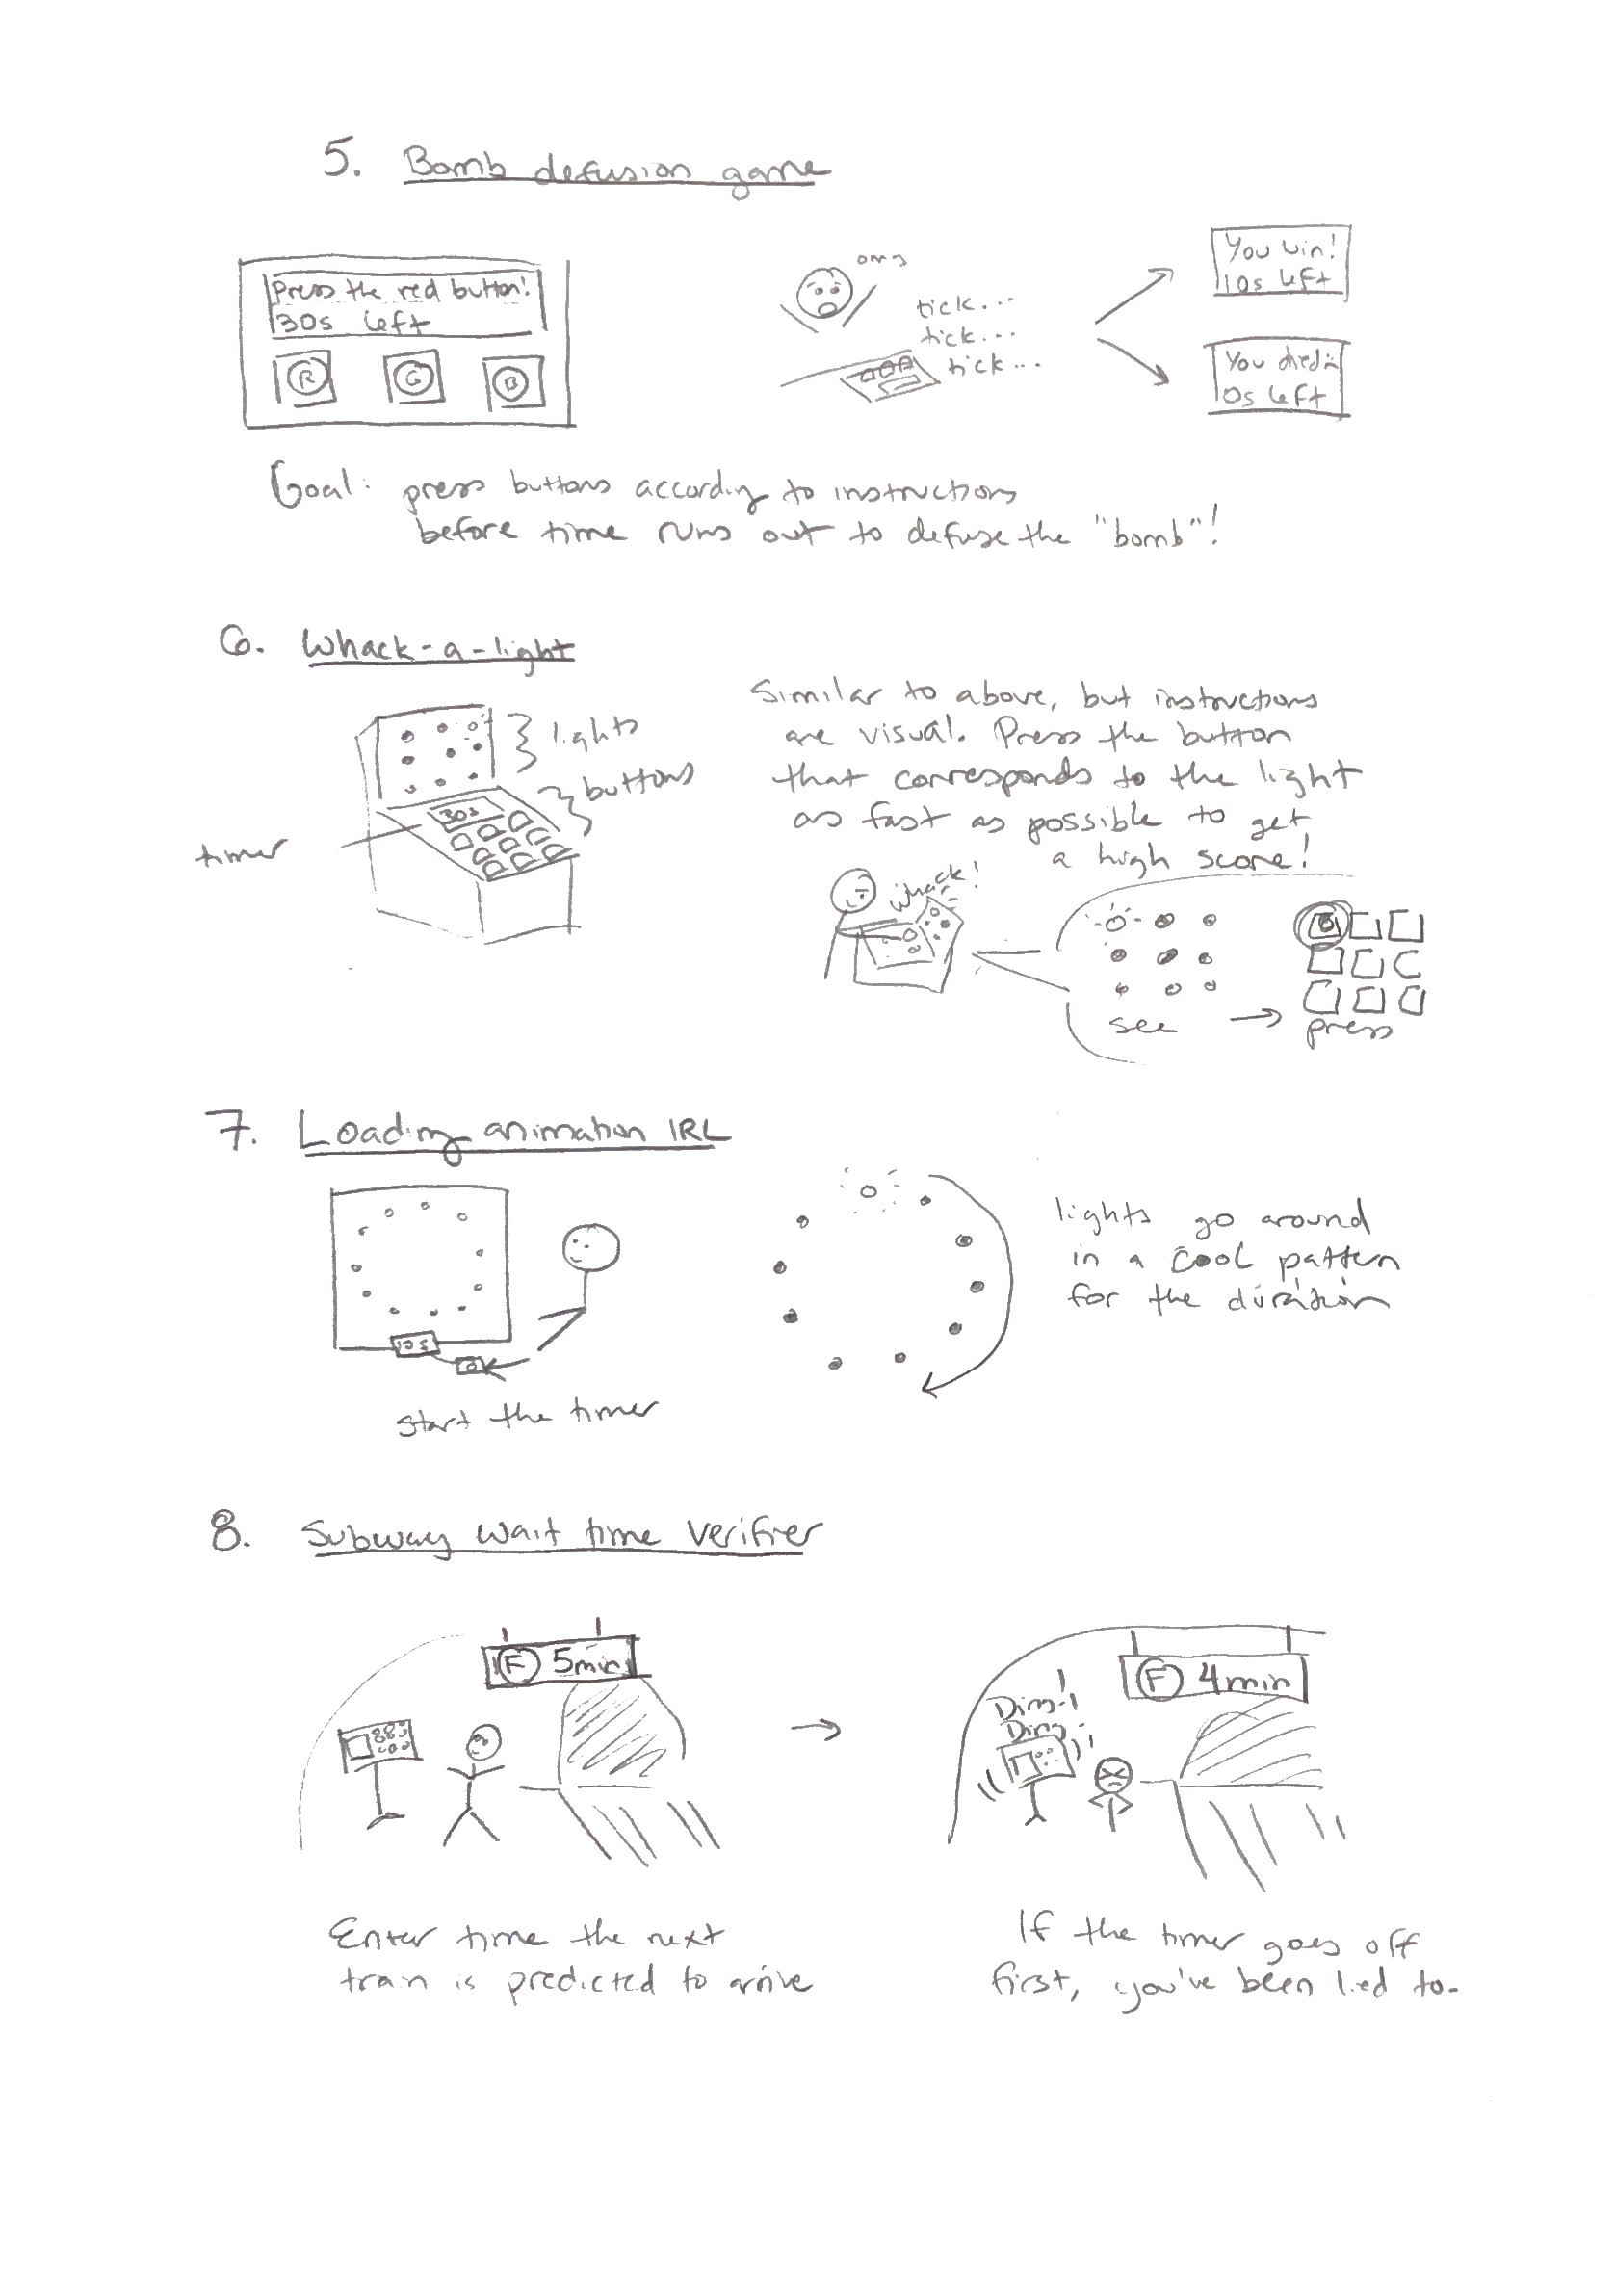 5. Bomb defusion game
Press the red button!
30s left
R G B
omg
tick...
tick...
tick...
You win!
10s left
You died :(
0s left
Goal: press buttons according to instructions
before time runs out to defuse the "bomb"!
6. Whack-a-light
lights
buttons
30s
timer
Similar to above, but instructions
are visual. Press the button
that corresponds to the light
as fast as possible to get
a high score!
whack!
see → press
7. Loading animation IRL
12s
start the timer
lights go around
in a cool pattern
for the duration
8. Subway wait time verifier
F 5min
Enter time the next
train is predicted to arrive
F 4min
Ding!
Ding!
If the timer goes off
first, you've been lied to.